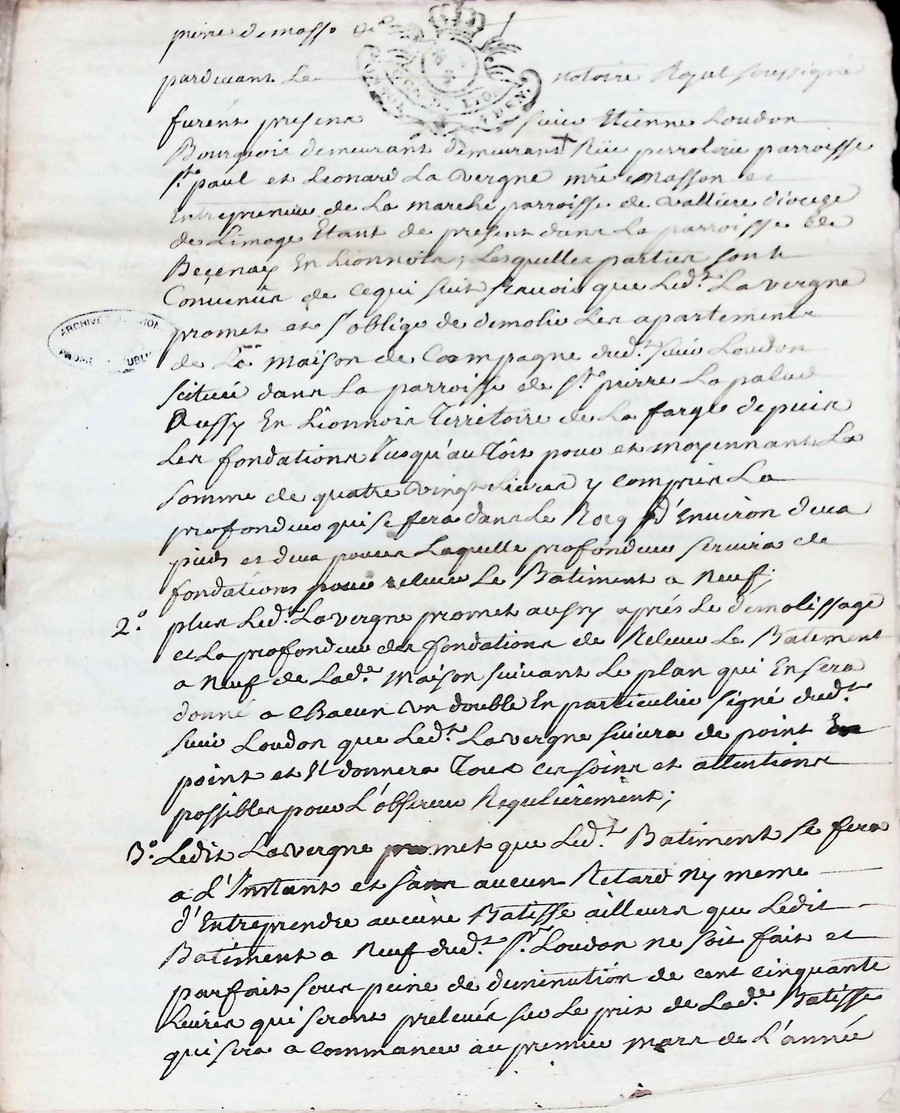 pardevant Le notaire Royal soussigné
furênt presens sieur Etienne Loudon
Bourgeois demeurant demeurant Rüe perrolerie parroisse
St. paul et Léonard La vergne mre. masson et
Entrepreneur de La marche parroisse de valliere diocese
de Limoge Etant de présent dans La parroisse de
Beçenay En Lionnois, Lesquelles parties sont
Convenües de cequi suit sçavoir que Ledt. La vergne
promet et s'oblige de demolir Les apartements
de La maison de Campagne dudt. sieur Loudon
scitüéé dans La parroisse de St. pierre Lapalud
Aussy En Lionnois Territoire de La farge depuis
Les fondations Jusqu'au Toit pour et moyennant La
somme de quatre vingt Livres y compris La
profondeur qui se fera dans Le Rocq d'Environ deux
pieds et deux pouces Laquelle profondeur servira de
fondations pour relever Le Batiment a Neuf;
2.° plus Ledt. Lavergne promet aussy aprés Le démolissage
et La profondeur des fondations de Relever Le Batiment
a Neuf de Lade. Maison suivant Le plan qui En sera
donné a chacun un double En particulier signé dudt.
sieur Loudon que Ledt. Lavergne suivra de point En
point et Il donnera Tous ces soins et attentions
possibles pour L'observer Regulièrement;
3.° Ledit Lavergne promet que Ledt. Batiment se fera
a L'Instant et sans aucun Retard Ny meme
d'Entreprendre aucune Batisse ailleurs que Ledit
Batiment a Neuf dudt. Sr. Loudon ne soit fait et
parfait sous peine de diminution de cent cinquante
Livres qui seront prelevés sur Le prix de Lade. Batisse
qui sera a commancer au premier mars de L'année